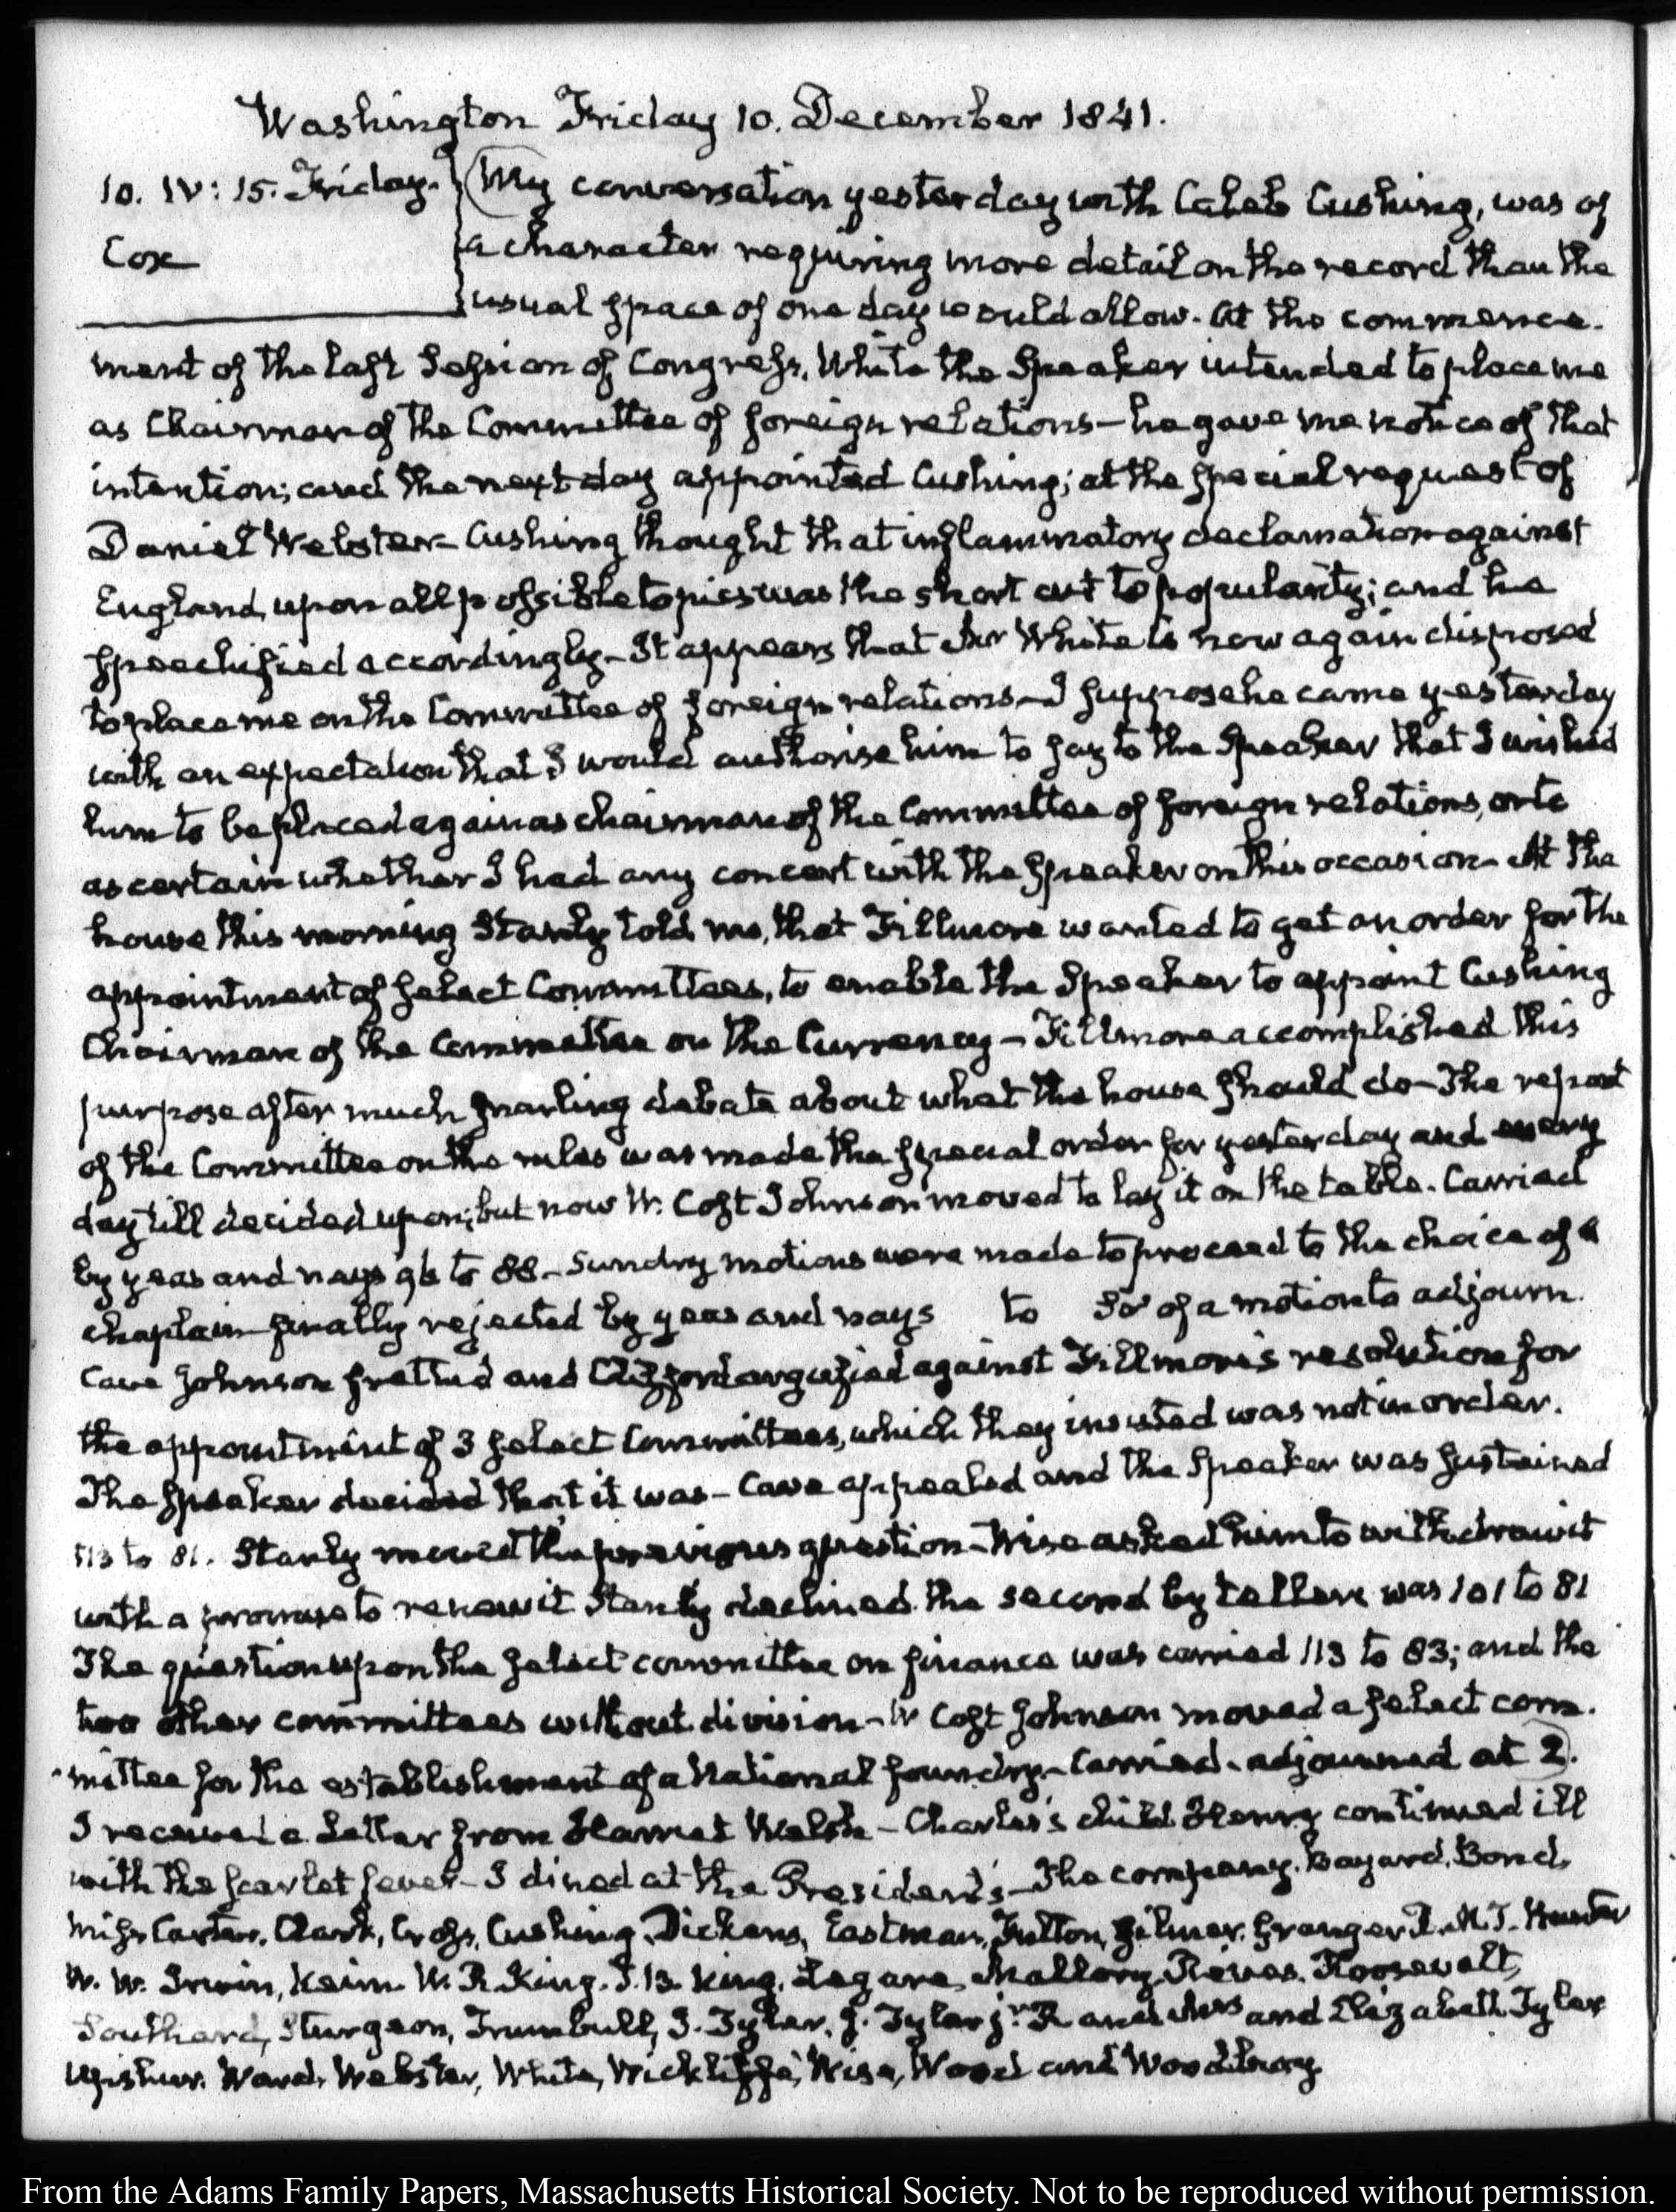 Washington Friday 10. December 1841.
10. IV: 15. Friday.
Cox
My conversation yesterday with Caleb Cushing, was of
a character requiring more detail on the record than the
usual space of one day would allow. At the commence-
ment of the last Session of Congress, White the Speaker intended to place me
as Chairman of the Committee of foreign relations – he gave me notice of that
intention; and the next day appointed Cushing; at the special request of
Daniel Webster – Cushing thought that inflammatory declamation against
England, upon all possible topics was the short cut to popularity; and he
speechified accordingly – It appears that Mr White is now again disposed
to place me on the Committee of foreign relations – I suppose he came yesterday
with an expectation that I would authorise him to say to the Speaker that I wished
him to be placed again as chairman of the Committee of foreign relations, or to
ascertain whether I had any concert with the Speaker on this occasion – At the
house this morning Stanly told me, that Fillmore wanted to get an order for the
appointment of select Committees, to enable the Speaker to appoint Cushing
Chairman of the Committee on the Currency – Fillmore accomplished this
purpose after much snarling debate about what the house should do – The report
of the Committee on the rules was made the special order for yesterday and every
day till decided upon; but now W. Cost Johnson moved to lay it on the table. Carried
by yeas and nays 96 to 88 – Sundry motions were made to proceed to the choice of a
chaplain finally rejected by yeas and nays to So of a motion to adjourn.
Cave Johnson fretted and Clifford argufied against Fillmore's resolution for
the appointment of 3 select Committees, which they insisted was not in order.
The Speaker decided that it was – Cave appealed and the Speaker was sustained
113 to 81. Stanly moved the previous question – Wise asked him to withdraw it
with a promise to renew it Stanly declined. The second by tellers was 101 to 81
The question upon the select committee on finance was carried 113 to 83; and the
two other committees without division – W Cost Johnson moved a select com-
mittee for the establishment of a National foundry – Carried. adjourned at 2.
I received a Letter from Harriet Welsh – Charles's child Henry continued ill
with the scarlet fever – I dined at the President's – The company. Bayard, Bond,
Miss Carter, Clark, Cross, Cushing, Dickens, Eastman, Fulton, Gilmer, Granger R. M. T. Hunter
W. W. Irwin, Keim. W. R. King. T. B. King, Legare, Mallory, Rives, Roosevelt,
Southard, Sturgeon, Trumbull, J. Tyler, J. Tyler jr. R and Mrs and Elizabeth Tyler
Upshur. Ward, Webster, White, Wickliffe, Wise, Wood and Woodbury
From the Adams Family Papers, Massachusetts Historical Society. Not to be reproduced without permission.